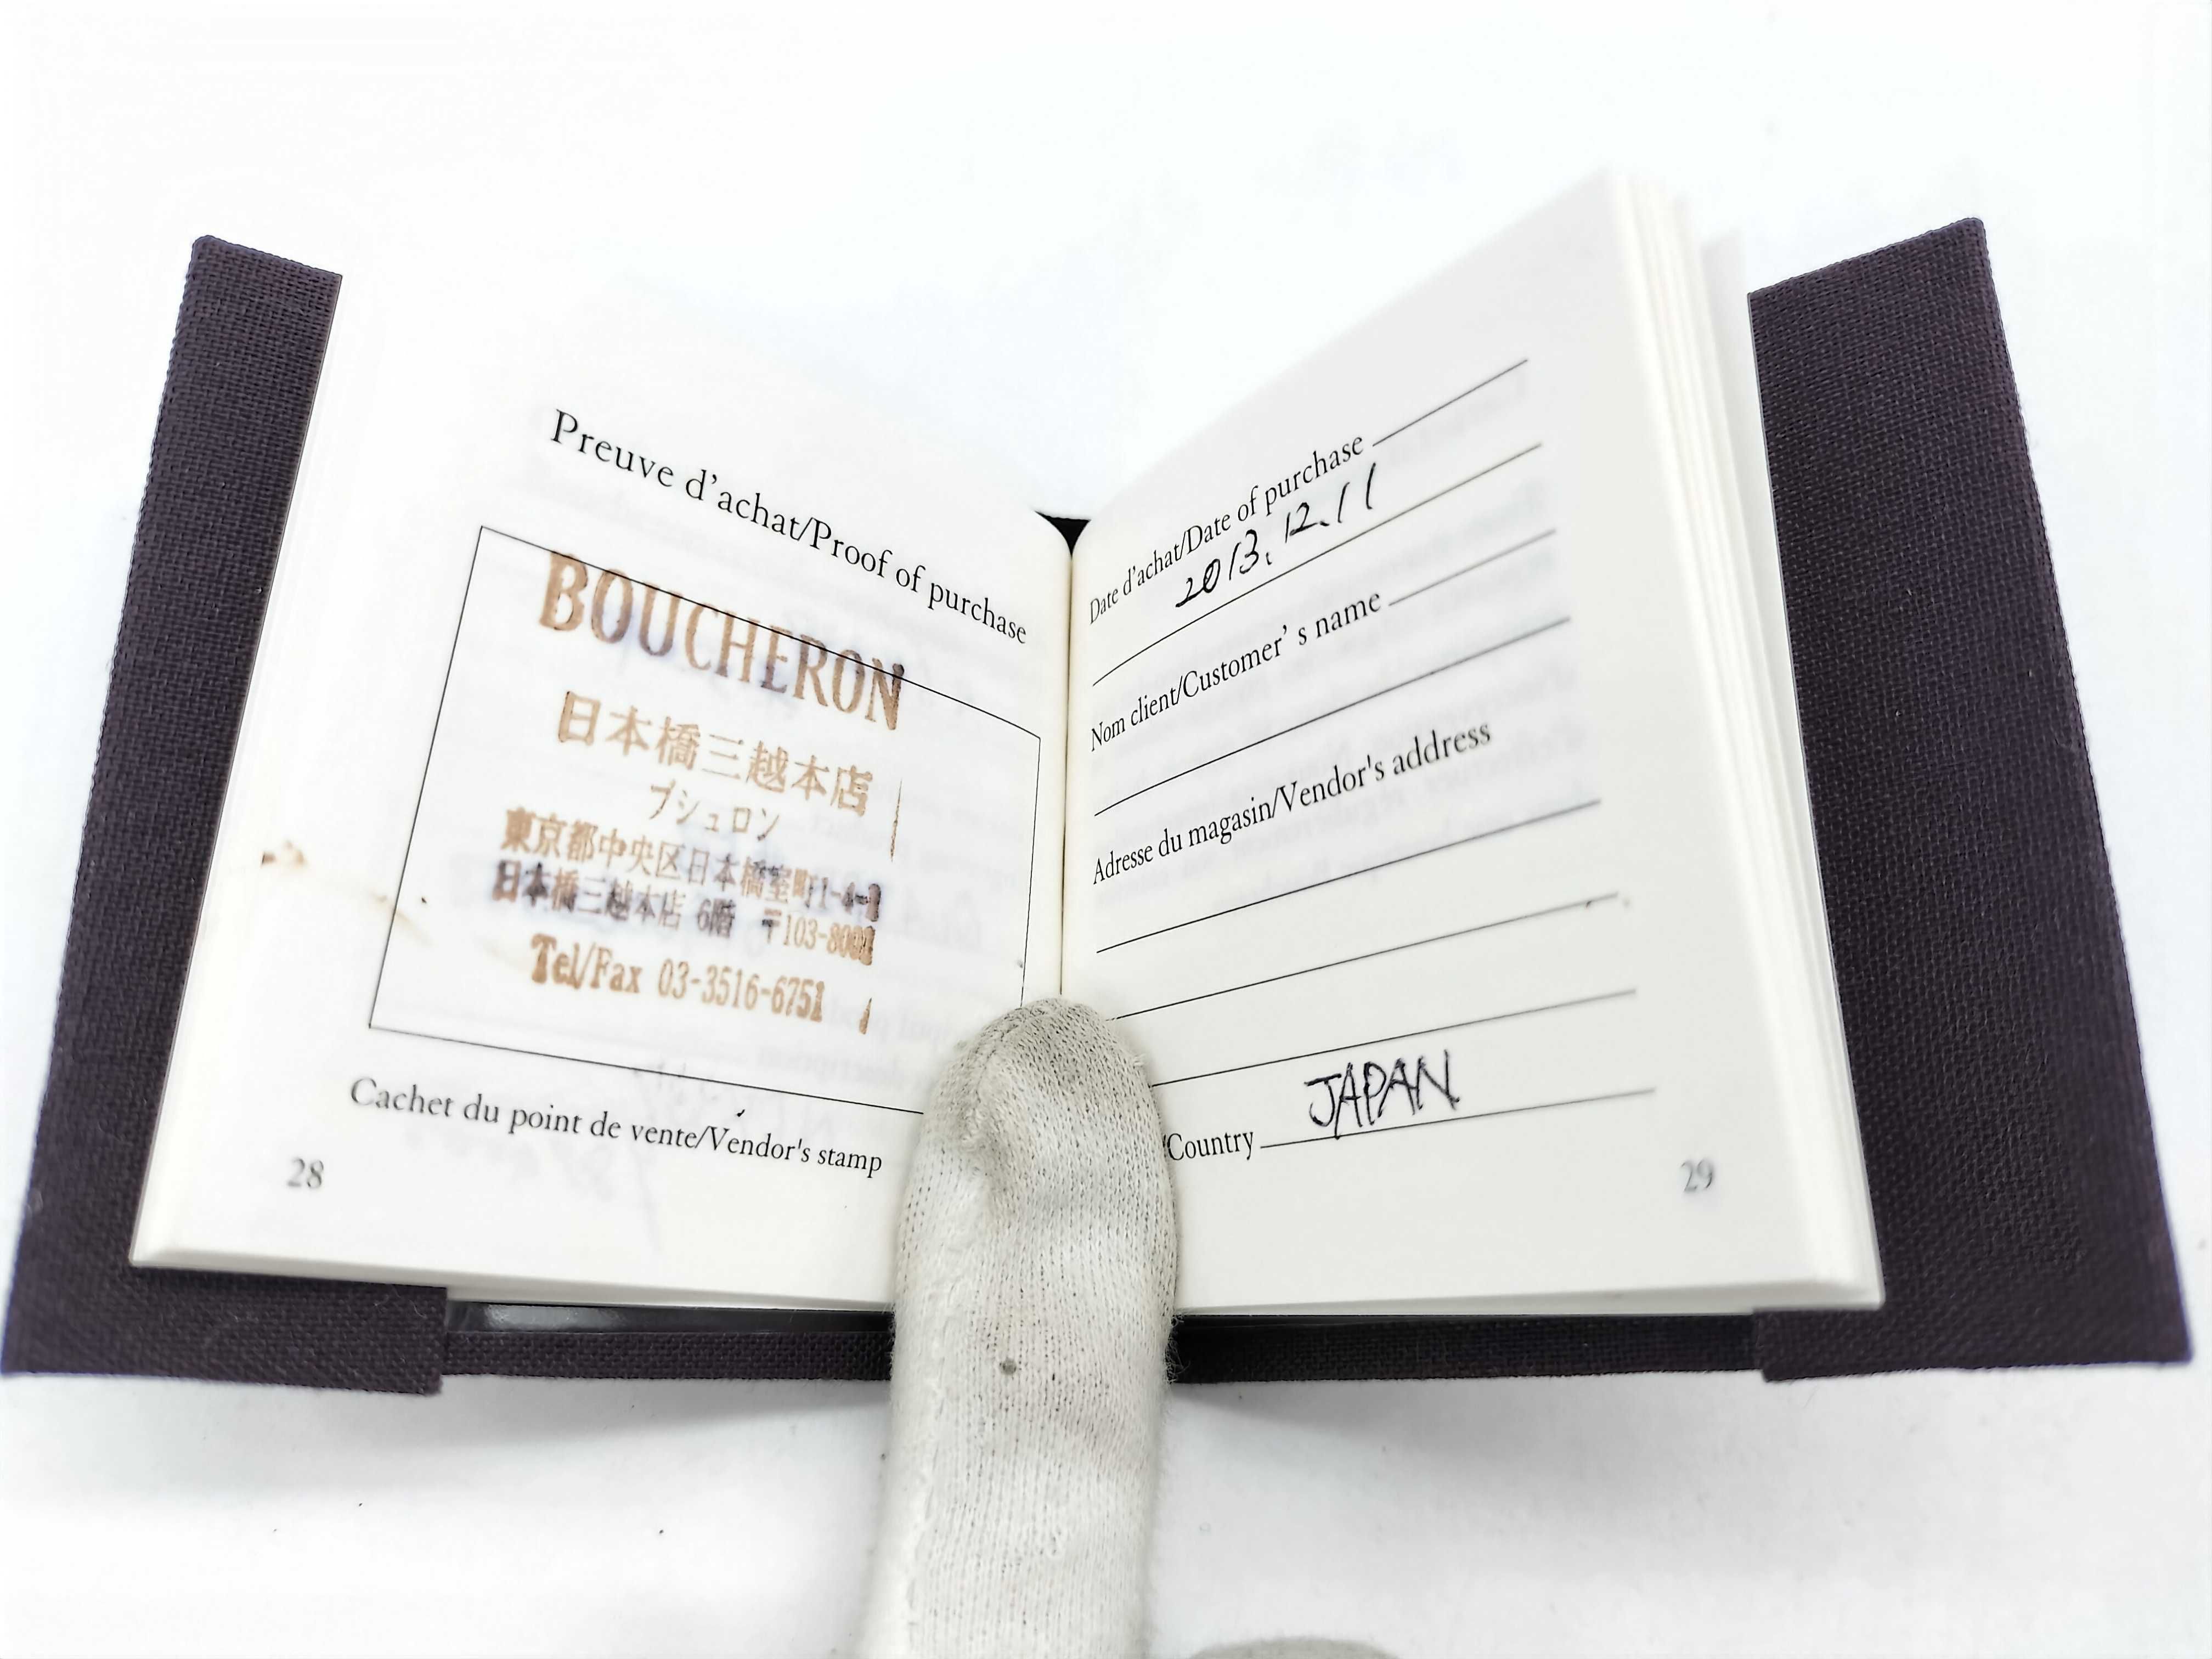 Preuve d'achat/Proof of purchase
BOUCHERON
日本橋三越本店
ブシュロン
東京都中央区日本橋室町1-4-1
日本橋三越本店 6階 〒103-8001
Tel/Fax 03-3516-6751
Cachet du point de vente/Vendor's stamp
28
Date d'achat/Date of purchase
2013.12.11
Nom client/Customer's name
Adresse du magasin/Vendor's address
/Country JAPAN
29